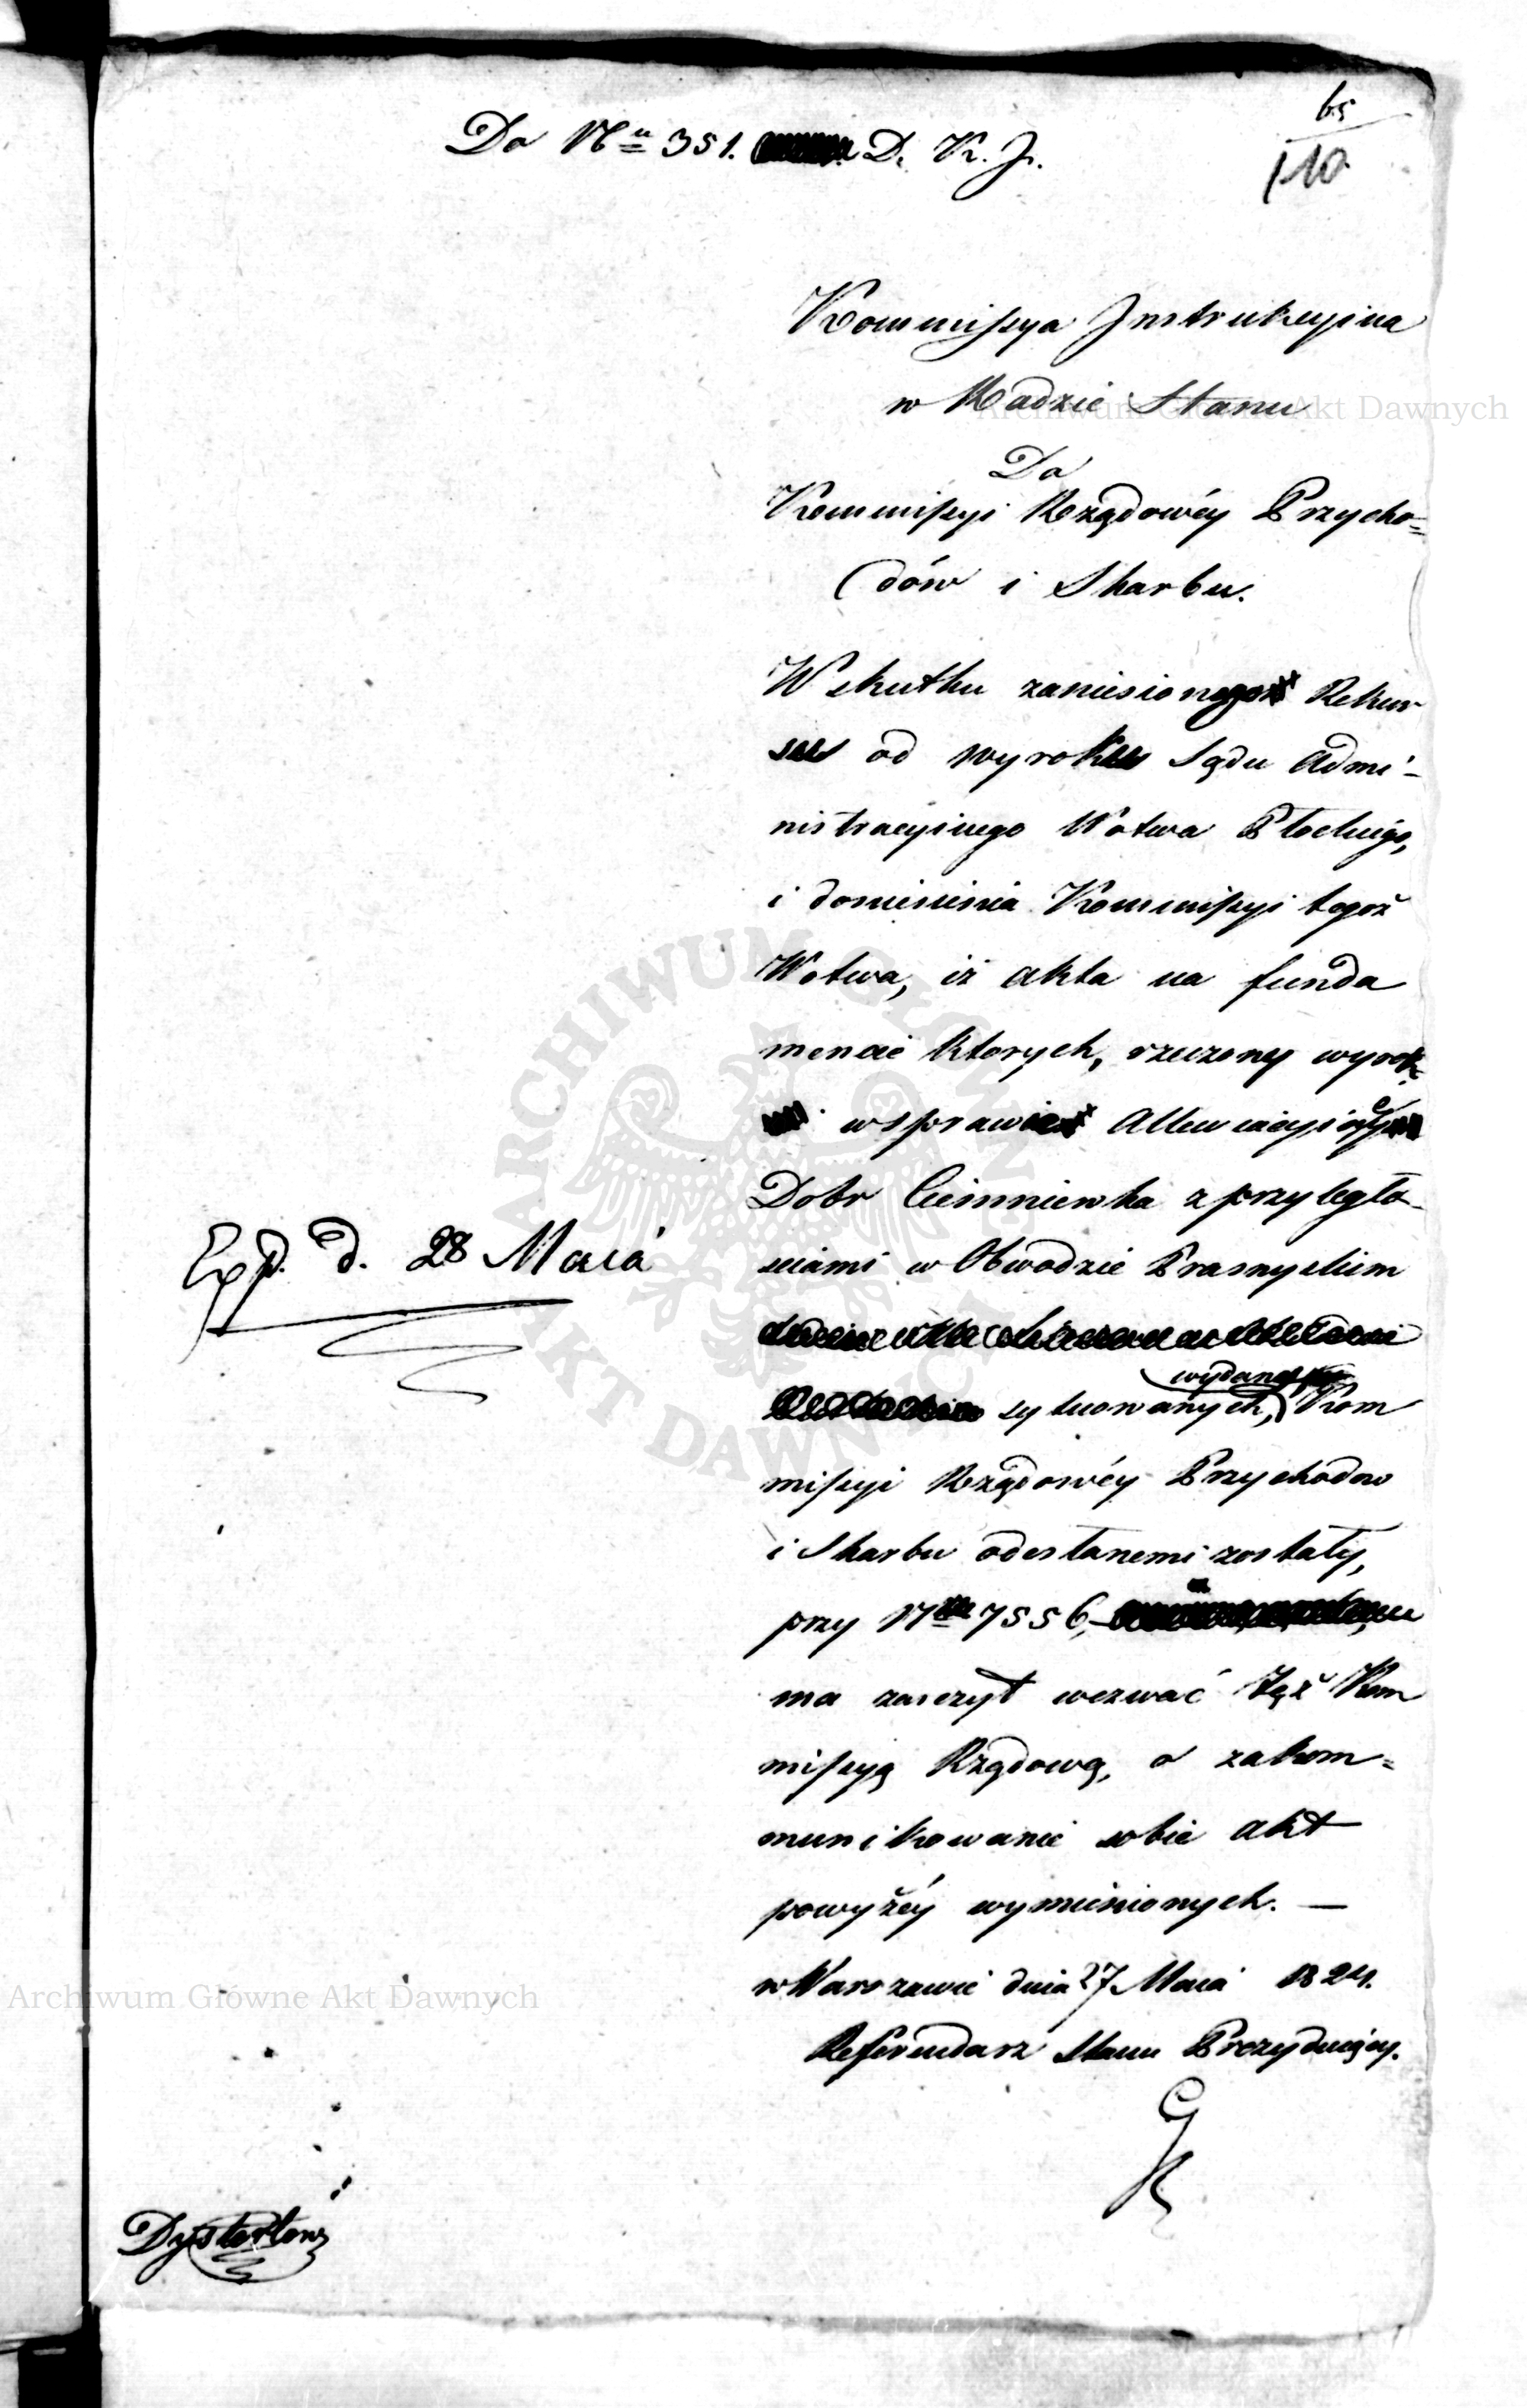 65
110
Do Nru 351. D. K. J.
Kommissya Instrukcyina
w Radzie Stanu
Do
Kommissyi Rządowéy Przycho=
dów i Skarbu.
W skutku zaniesionego Rekur
su od wyroku Sądu Admi-
nistracyinego Wotwa Płockiego,
i doniesienia Kommissyi tegoż
Wotwa, iż akta na funda
mencie ktorych, rzeczony wyrok
w sprawie Allewiacyi
Dobr Ciemniewka z przyległo-
sciami w Obwodzie Prasnyskim
wydany
sytuowanych, Kom
missyi Rządowéy Przychodow
i Skarbu odesłanemi zostały,
przy Nrze 7556,
ma zaszczyt wezwać Tęż Kom
missyą Rządową, o zakom=
munikowanie sobie akt
powyżéy wymienionych. —
w Warszawie dnia 27 Maia 1824.
Referendarz Stanu Prezyduiący.
Exp. d. 28 Maia
Archiwum Główne Akt Dawnych
Archiwum Główne Akt Dawnych
ARCHIWUM GŁÓWNE
AKT DAWNYCH